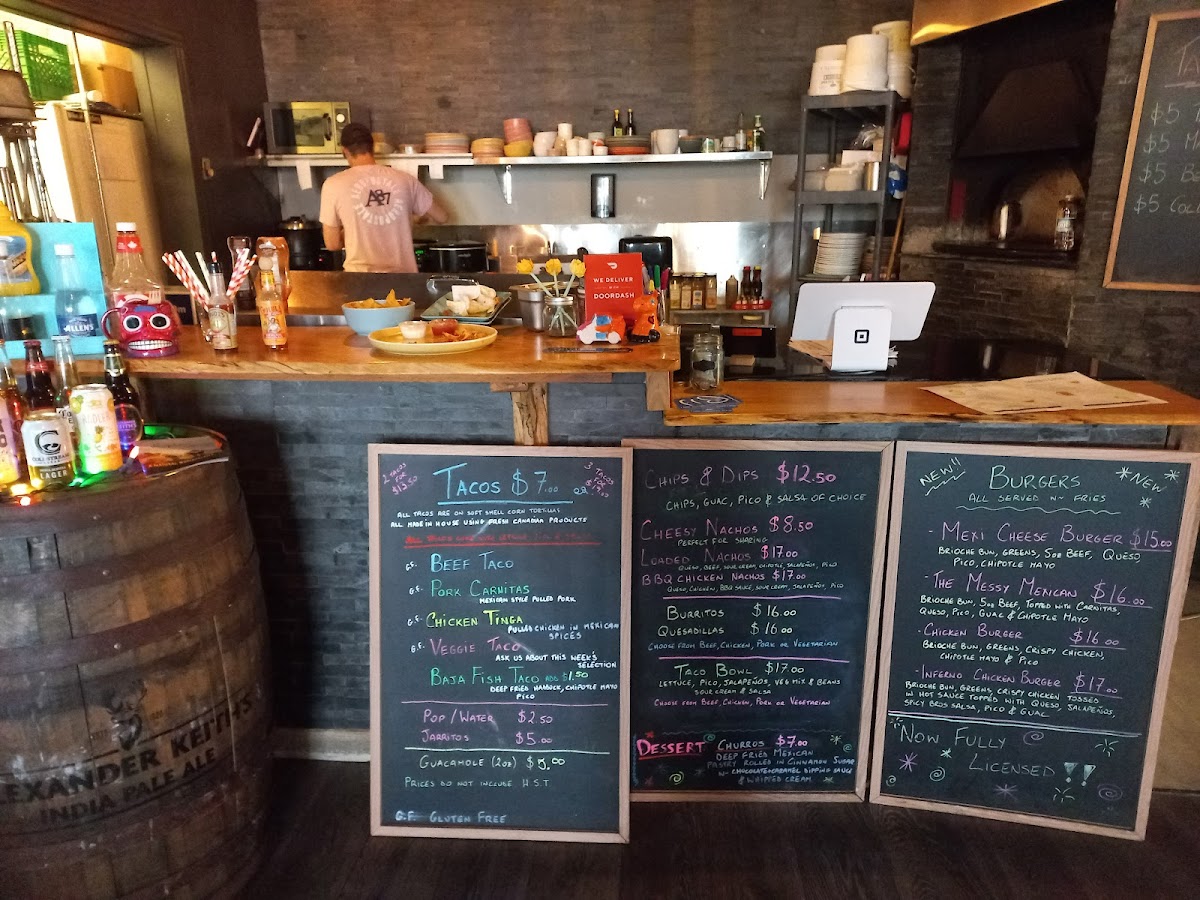 A87
WE DELIVER
WITH
DOORDASH
ALLEN'S
LAGER
TA
$5
$5 MA
$5 B
$5 COL
2 TACOS
FOR
$13.50
TACOS $7.00
3 TACOS
FOR
ALL TACOS ARE ON SOFT SHELL CORN TORTILLAS
ALL MADE IN HOUSE USING FRESH CANADIAN PRODUCTS
G.F. BEEF TACO
G.F. PORK CARNITAS
MEXICAN STYLE PULLED PORK
G.F. CHICKEN TINGA
PULLED CHICKEN IN MEXICAN
SPICES
G.F. VEGGIE TACO
ASK US ABOUT THIS WEEK'S
SELECTION
BAJA FISH TACO ADD $1.50
DEEP FRIED HADDOCK, CHIPOTLE MAYO
PICO
POP/WATER $2.50
JARRITOS $5.00
GUACAMOLE (2oz)
PRICES DO NOT INCLUDE H.S.T
G.F. GLUTEN FREE
CHIPS & DIPS $12.50
CHIPS, GUAC, PICO & SALSA OF CHOICE
CHEESY NACHOS $8.50
PERFECT FOR SHARING
LOADED NACHOS $17.00
QUESO, BEEF, SOUR CREAM, CHIPOTLE, JALAPEÑOS, PICO
BBQ CHICKEN NACHOS $17.00
QUESO, CHICKEN, BBQ SAUCE, SOUR CREAM, JALAPEÑOS, PICO
BURRITOS $16.00
QUESADILLAS $16.00
CHOOSE FROM BEEF, CHICKEN, PORK OR VEGETARIAN
TACO BOWL $17.00
LETTUCE, PICO, JALAPEÑOS, VEG MIX & BEANS
SOUR CREAM & SALSA
CHOOSE FROM BEEF, CHICKEN, PORK OR VEGETARIAN
DESSERT CHURROS $7.00
DEEP FRIED MEXICAN
PASTRY ROLLED IN CINNAMON SUGAR
W~ CHOCOLATE & CARAMEL DIPPING SAUCE
& WHIPPED CREAM
NEW!! BURGERS NEW
ALL SERVED W~ FRIES
- MEXI CHEESE BURGER $15.00
BRIOCHE BUN, GREENS, 5oz BEEF, QUESO,
PICO, CHIPOTLE MAYO
- THE MESSY MEXICAN $16.00
BRIOCHE BUN, 5oz BEEF, TOPPED WITH CARNITAS,
QUESO, PICO, GUAC & CHIPOTLE MAYO
- CHICKEN BURGER $16.00
BRIOCHE BUN, GREENS, CRISPY CHICKEN,
CHIPOTLE MAYO & PICO
- INFERNO CHICKEN BURGER $17.00
BRIOCHE BUN, GREENS, CRISPY CHICKEN TOSSED
W HOT SAUCE TOPPED WITH QUESO, JALAPEÑOS,
SPICY BROS SALSA, PICO & GUAC
NOW FULLY
LICENSED !!
EXANDER KEITH'S
INDIA PALE ALE